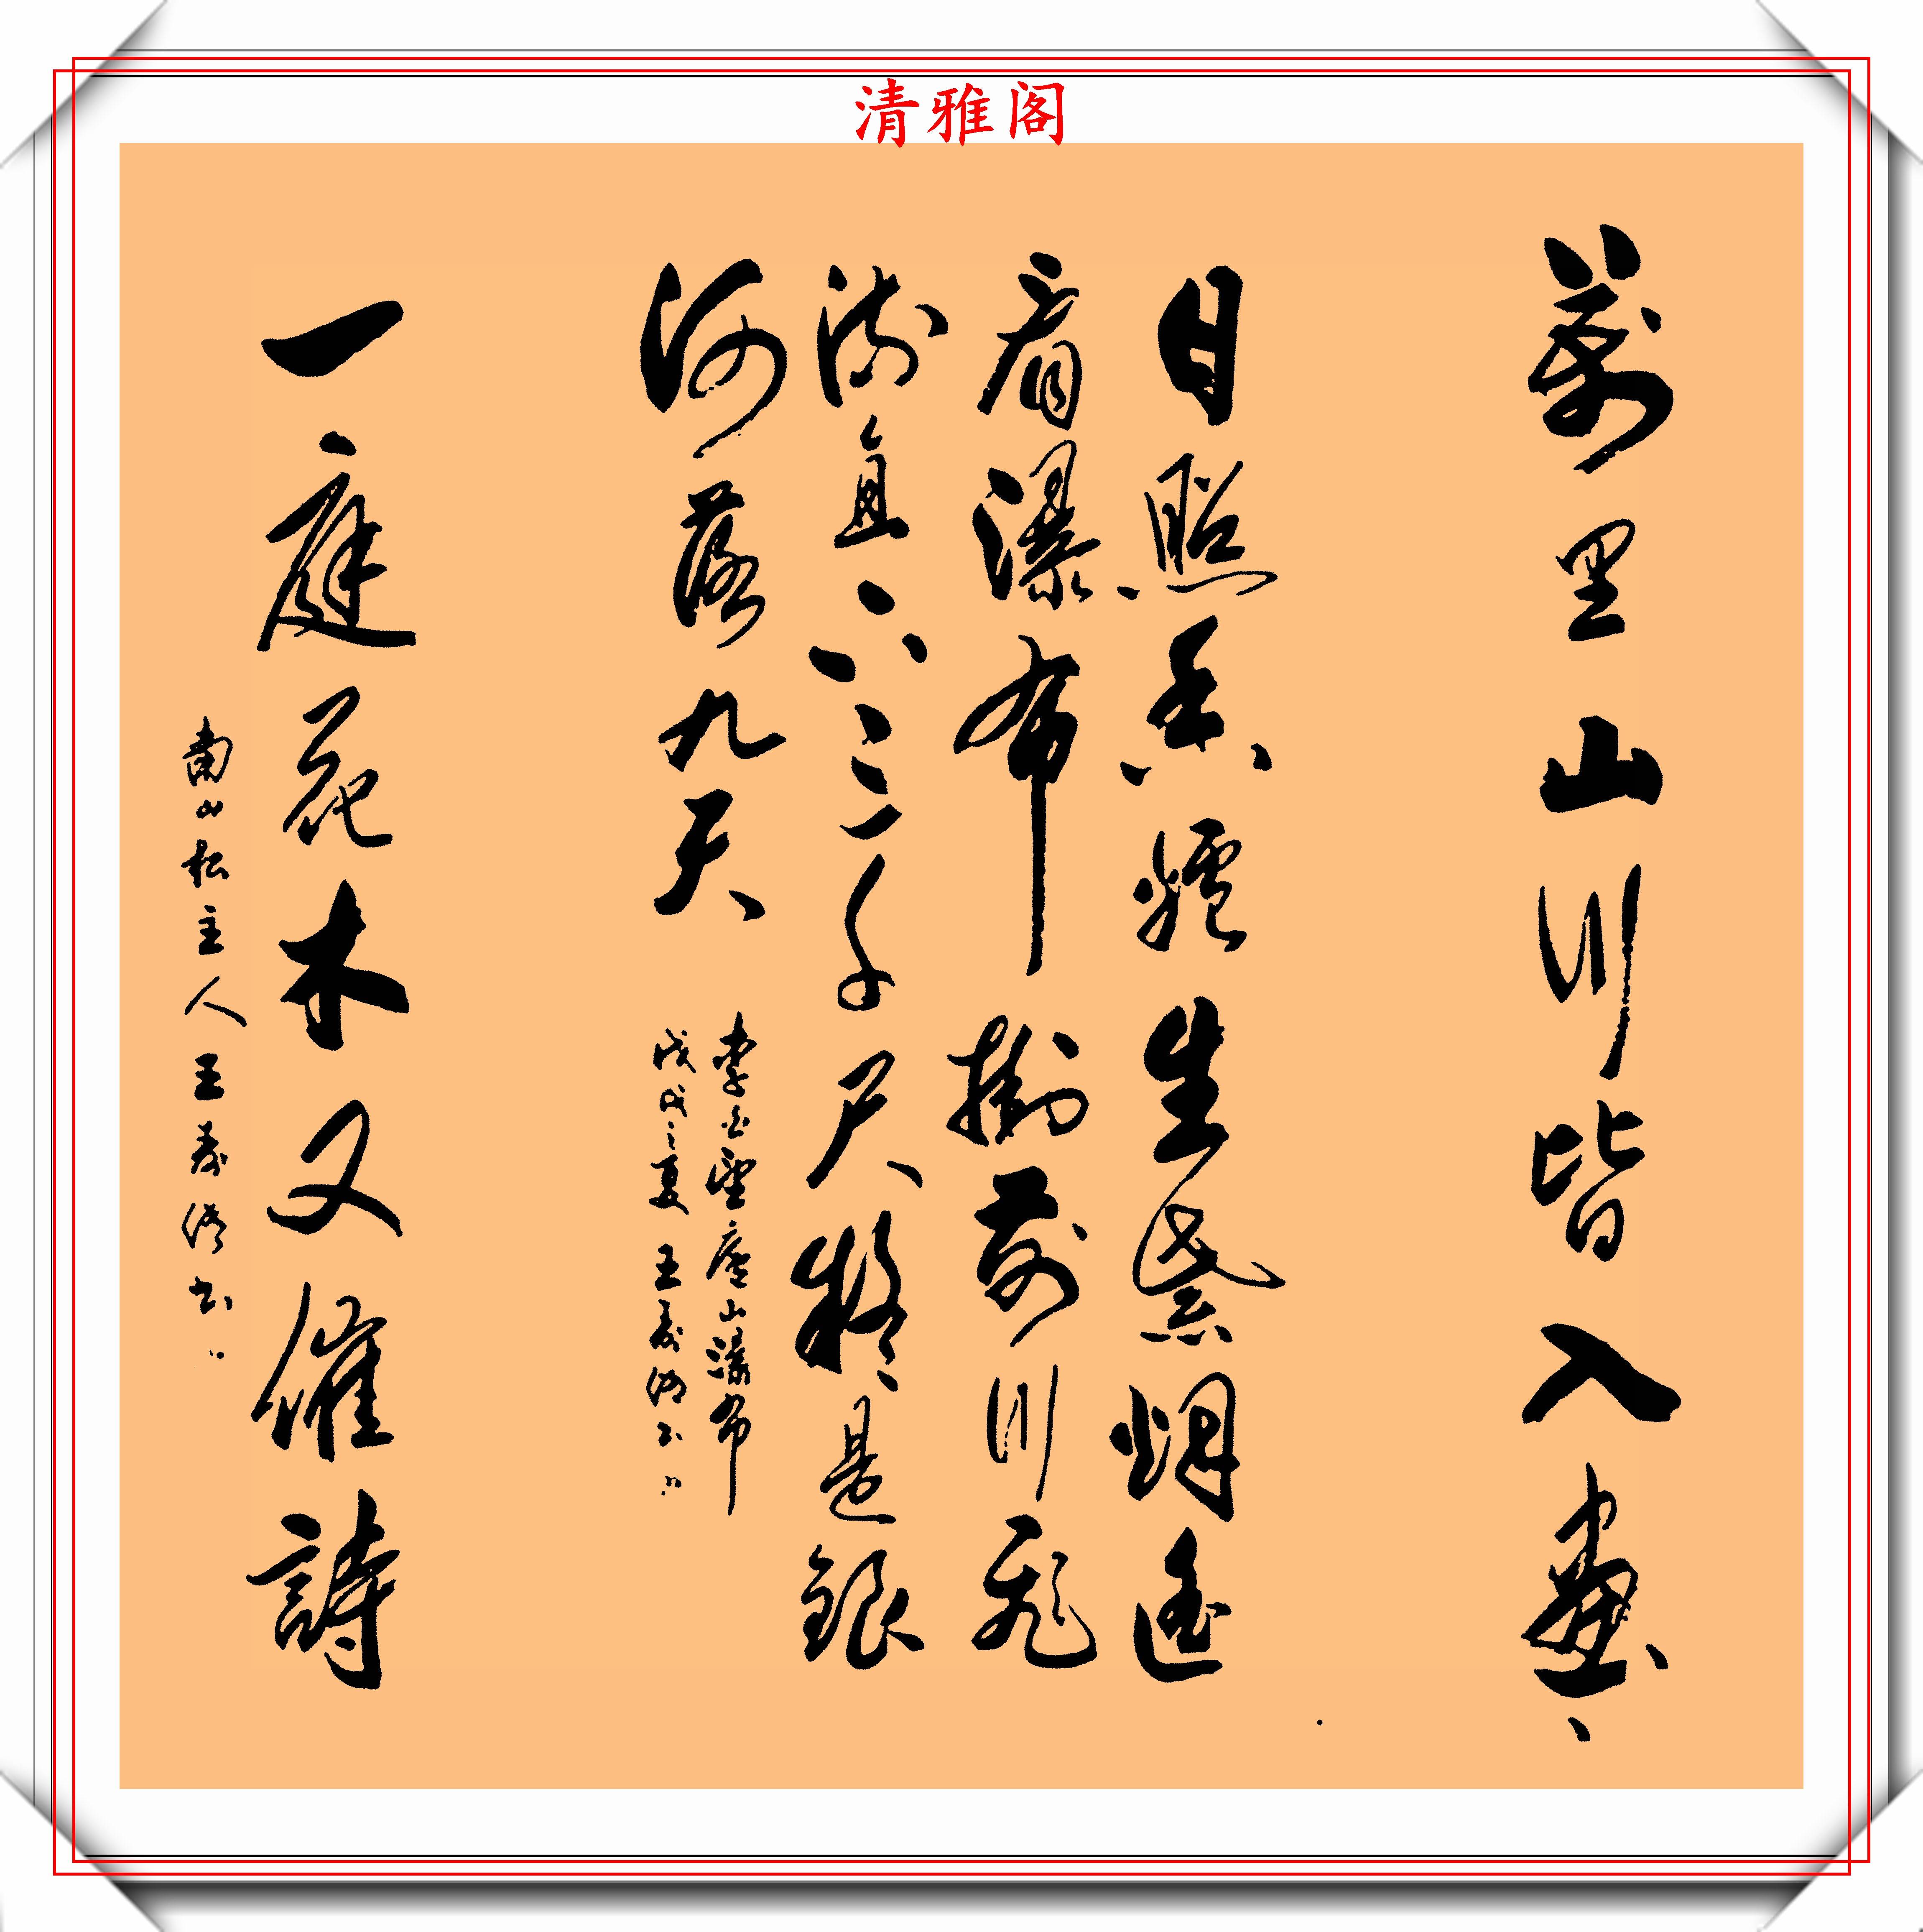 清雅阁
萬里山川皆入畫
日照香爐生紫烟遥
看瀑布掛前川飛
流直下三千尺疑是銀
河落九天
李白望廬山瀑布
戊戌之夏 王
一庭花木又催詩
南山松主人王